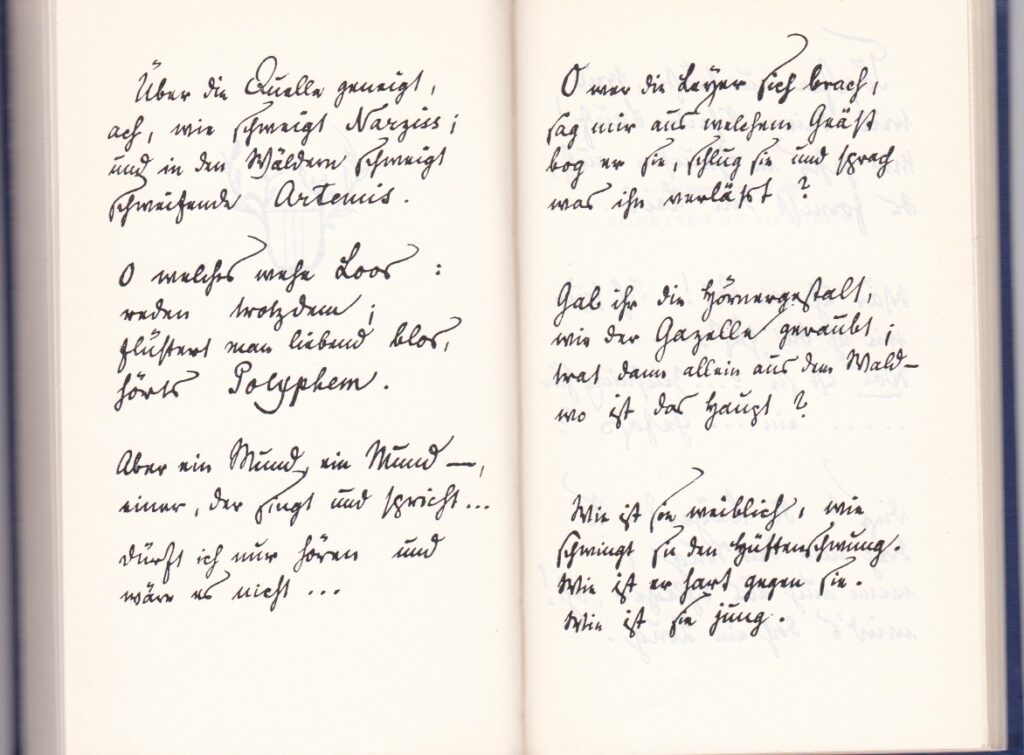 Über die Quelle geneigt,
ach, wie schweigt Narziss;
und in den Wäldern schweigt
schweifende Artemis.
O welches wehe Loos :
reden trotzdem;
flüstert man liebend blos,
hörts Polyphem.
Aber ein Mund, ein Mund —,
einer, der singt und spricht...
dürft ich nur hören und
wärr es nicht ...
O wer die Leyer sich brach,
sag mir aus welchem Geäst
bog er sie, schlug sie und sprach
was ihn verläßt ?
Gab ihr die Hörnergestalt,
wie der Gazelle geraubt;
trat dann allein aus dem Wald—
wo ist das Haupt ?
Wie ist sie weiblich, wie
schwingt sie den Hüftenschwung.
Wie ist er hart gegen sie.
Wie ist sie jung.